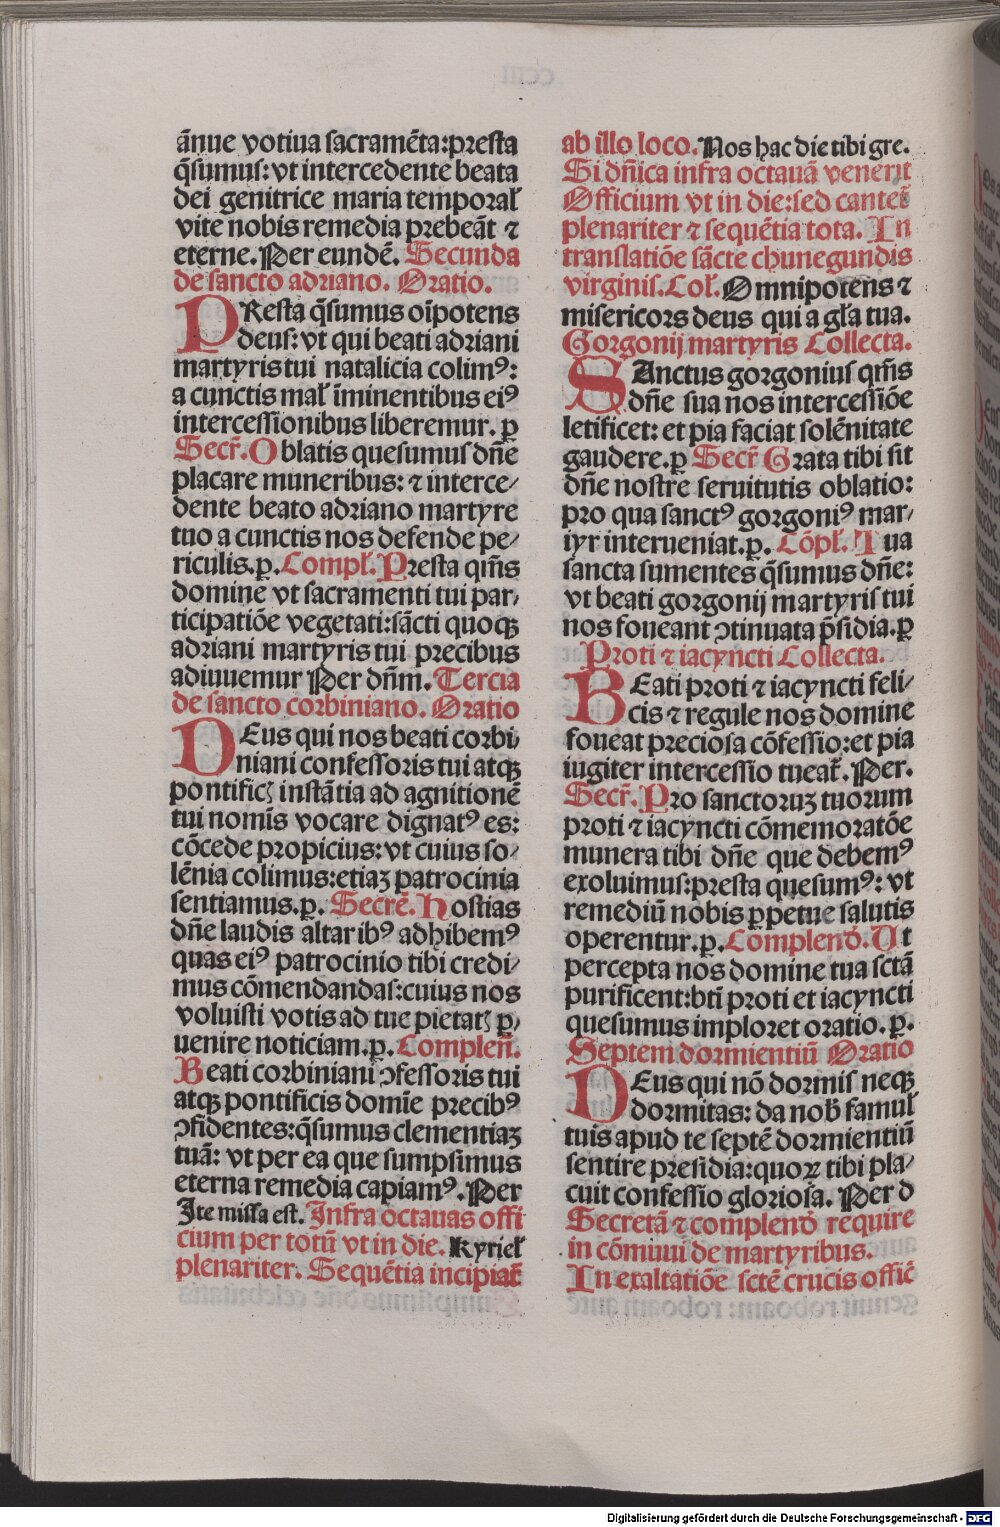 ãnue votiua sacramẽta:presta
q̃sumus: vt intercedente beata
dei genitrice maria temporaƚ
vite nobis remedia prebeãt ⁊
eterne. Per eundẽ. Secunda
de sancto adriano. Oratio.
PResta q̃sumus oĩpotens
deus: vt qui beati adriani
martyris tui natalicia colimꝰ:
a cunctis maƚ ĩminentibus eiꝰ
intercessionibus liberemur. ꝑ
Secr̃. Oblatis quesumus dñe
placare muneribus: ⁊ interce⸗
dente beato adriano martyre
tuo a cunctis nos defende pe⸗
riculis.ꝑ. Compƚ. Presta qm̃s
domine vt sacramenti tui par⸗
ticipatiõe vegetati:sãcti quoqꝫ
adriani martyris tui precibus
adiuuemur Per dñm. Tercia
de sancto corbiniano. Oratio
DEus qui nos beati corbi⸗
niani confessoris tui atqꝫ
pontificꝭ instãtia ad agnitionẽ
tui nomĩs vocare dignatꝰ es:
cõcede propicius: vt cuius so⸗
lẽnia colimus:etiaꝫ patrocinia
sentiamus.ꝑ. Secrẽ. Hostias
dñe laudis altaribꝰ adhibemꝰ
quas eiꝰ patrocinio tibi credi⸗
mus cõmendandas:cuius nos
voluisti votis ad tue pietatꝭ ꝑ⸗
uenire noticiam.ꝑ. Compleñ.
Beati corbiniani ꝯfessoris tui
atqꝫ pontificis domĩe precibꝰ
ꝯfidentes:q̃sumus clementiaꝫ
tuã: vt per ea que sumpsimus
eterna remedia capiamꝰ. Per
Ite missa est. Infra octauas offi
cium per totũ vt in die. Kyrieƚ
plenariter. Sequẽtia incipiat̃
ab illo loco. Nos hac die tibi gre.
Si dñica infra octauã venerit
Officium vt in die:sed cantet̃
plenariter ⁊ sequẽtia tota. In
translatiõe sãcte chunegundis
virginis. Coƚ. Omnipotens ⁊
misericors deus qui a gľa tua.
Gorgonij martyris Collecta.
SAnctus gorgonius qm̃s
dñe sua nos intercessiõe
letificet: et pia faciat solẽnitate
gaudere.ꝑ Secr̃ Grata tibi sit
dñe nostre seruitutis oblatio:
pro qua sanctꝰ gorgoniꝰ mar⸗
tyr interueniat.ꝑ. Cõpƚ. Tua
sancta sumentes q̃sumus dñe:
vt beati gorgonij martyris tui
nos foueant ꝯtinuata p̃sidia.ꝑ
Proti ⁊ iacyncti Collecta.
BEati proti ⁊ iacyncti feli⸗
cis ⁊ regule nos domine
foueat preciosa cõfessio:et pia
iugiter intercessio tueat̃. Per.
Secr̃. Pro sanctoruꝫ tuorum
proti ⁊ iacyncti cõmemoratõe
munera tibi dñe que debemꝰ
exoluimus:presta quesumꝰ: vt
remediũ nobis ꝑpetue salutis
operentur.ꝑ. Complend̃. Vt
percepta nos domine tua sctã
purificent:bti̇̃ proti et iacyncti
quesumus imploret oratio.ꝑ.
Septem dormientiũ Oratio
DEus qui nõ dormis neqꝫ
dormitas: da nob̃ famuƚ
tuis apud te septẽ dormientiũ
sentire presidia:quoꝝ tibi pla⸗
cuit confessio gloriosa. Per d
Secretã ⁊ complend̃ require
in cõmuni de martyribus.
In exaltatiõe sctẽ crucis officẽ
Digitalisierung gefördert durch die Deutsche Forschungsgemeinschaft - DFG